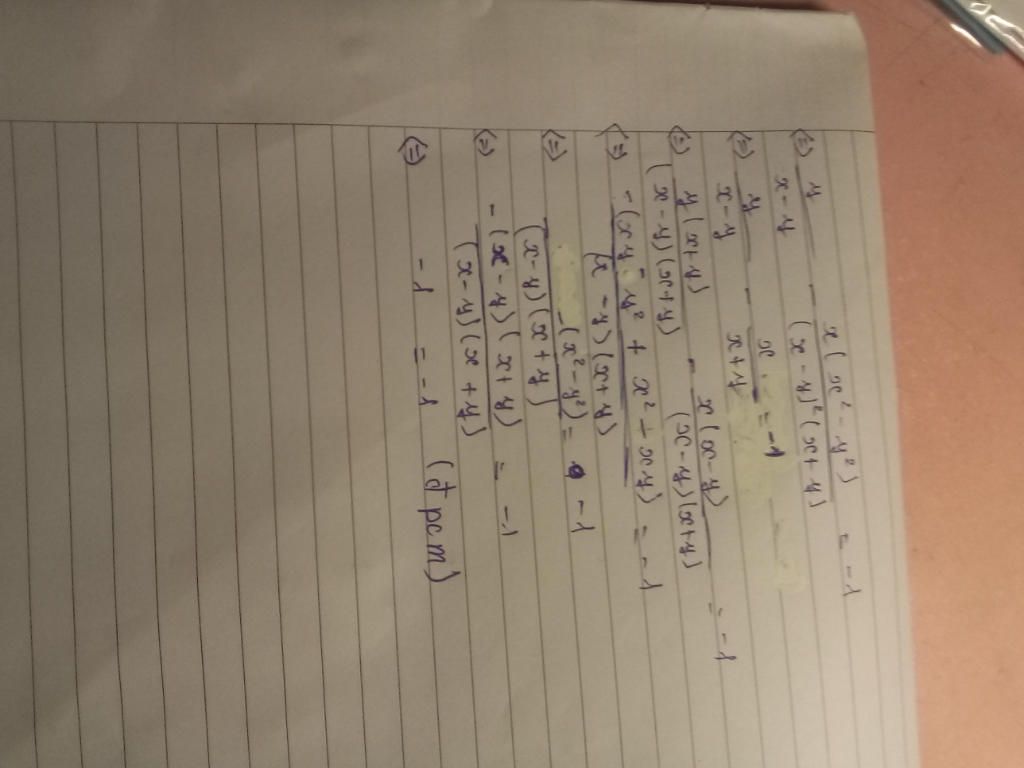 (=) \frac{y}{x-y} - \frac{x(x²-y²)}{(x-y)²(x+y)} = -1
(=) \frac{y}{x-y} - \frac{x}{x+y} = -1
(=) \frac{y(x+y)}{(x-y)(x+y)} - \frac{x(x-y)}{(x-y)(x+y)} = -1
(=) \frac{-(xy-y²+x²+xy)}{(x-y)(x+y)} = -1
(=) \frac{-(x²-y²)}{(x-y)(x+y)} = -1
(=) \frac{-(x-y)(x+y)}{(x-y)(x+y)} = -1
(=) -1 = -1 (đpcm)